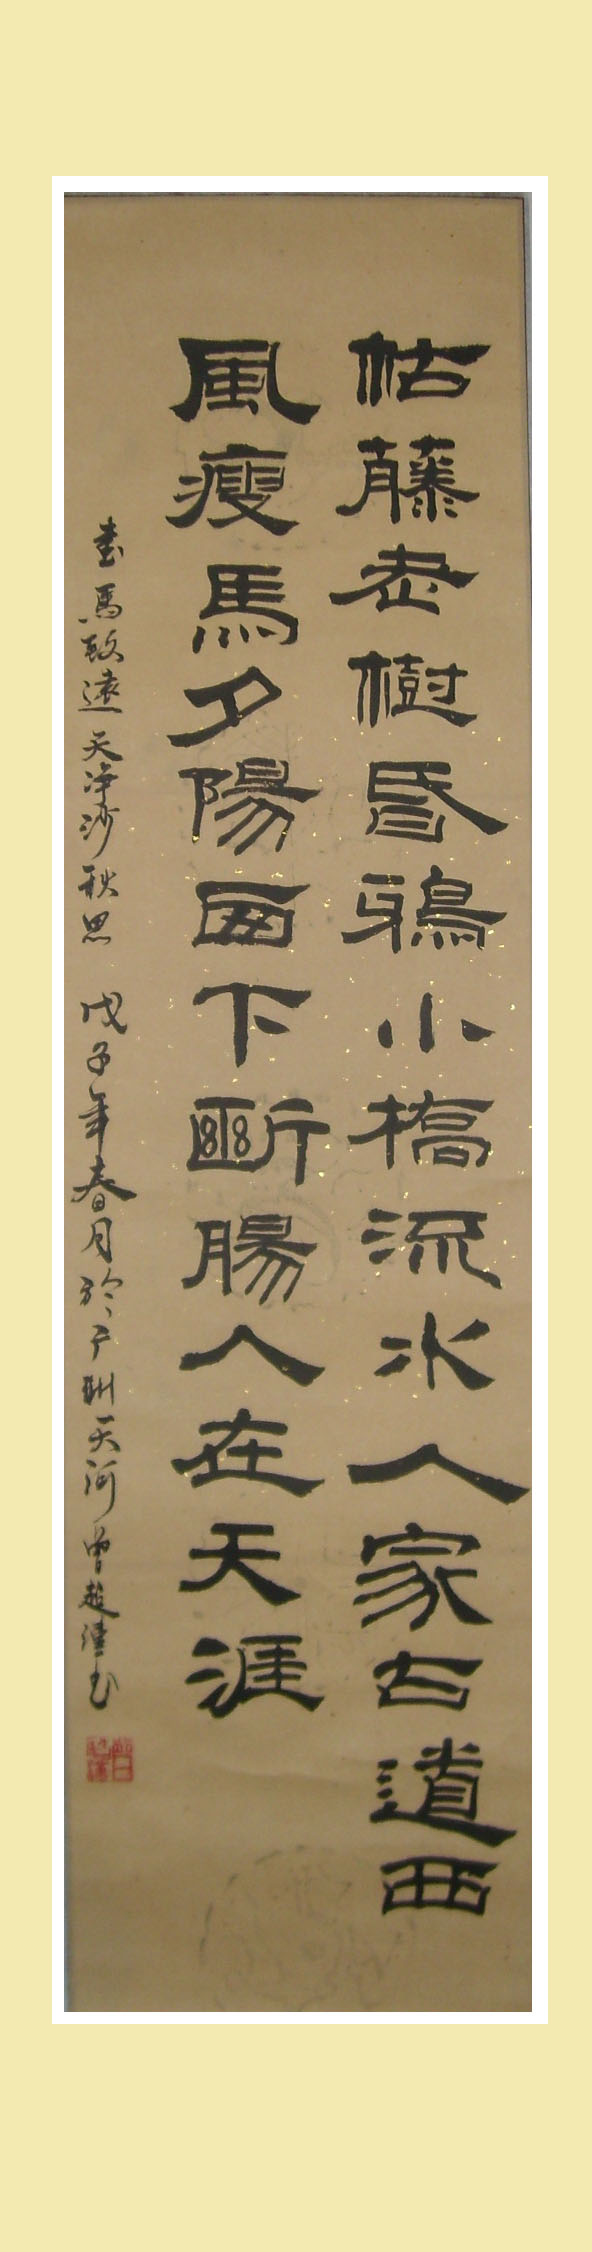 枯藤老樹昏鴉小橋流水人家古道西
風瘦馬夕陽西下斷腸人在天涯
書馬致遠天淨沙秋思 戊子年春月於广州天河曾超漢书